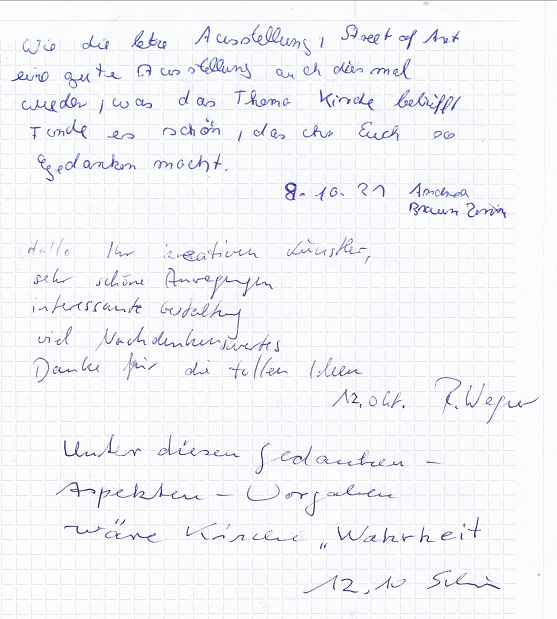 Wie die letzte Ausstellung, Street of Art
eine gute Ausstellung auch diesmal
wieder, was das Thema Kirche betrifft
Finde es schön, das ihr Euch so
Gedanken macht.
8.10.21 Andrea
Braun
Hallo Ihr kreativen Künstler,
sehr schöne Anregungen
interessante Gestaltung
viel Nachdenkenswertes
Danke für die tollen Ideen
12. Okt. R. Wegner
Unter diesen Gedanken –
Aspekten – Vorgaben
wäre Kirche „Wahrheit
12.10